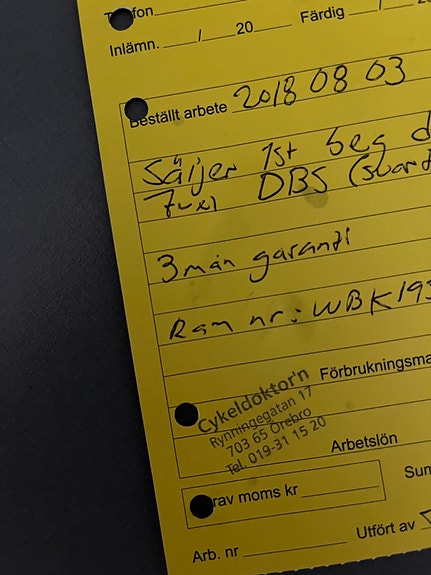 Telefon
Inlämn. / 20 Färdig / 20
Beställt arbete 2018 08 03
Säljer 1st beg
7vxl DBS (svart
3 mån garanti
Ram nr: WBK193
Cykeldoktor'n
Förbrukningsma
Rynningegatan 17
703 65 Örebro
Tel. 019-31 15 20
Arbetslön
Sum
rav moms kr
Utfört av
Arb. nr